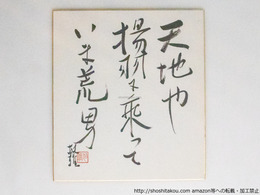 天地や
揚羽に乗って
いま荒男
http://shoshitakou.com amazon等への転載・加工禁止